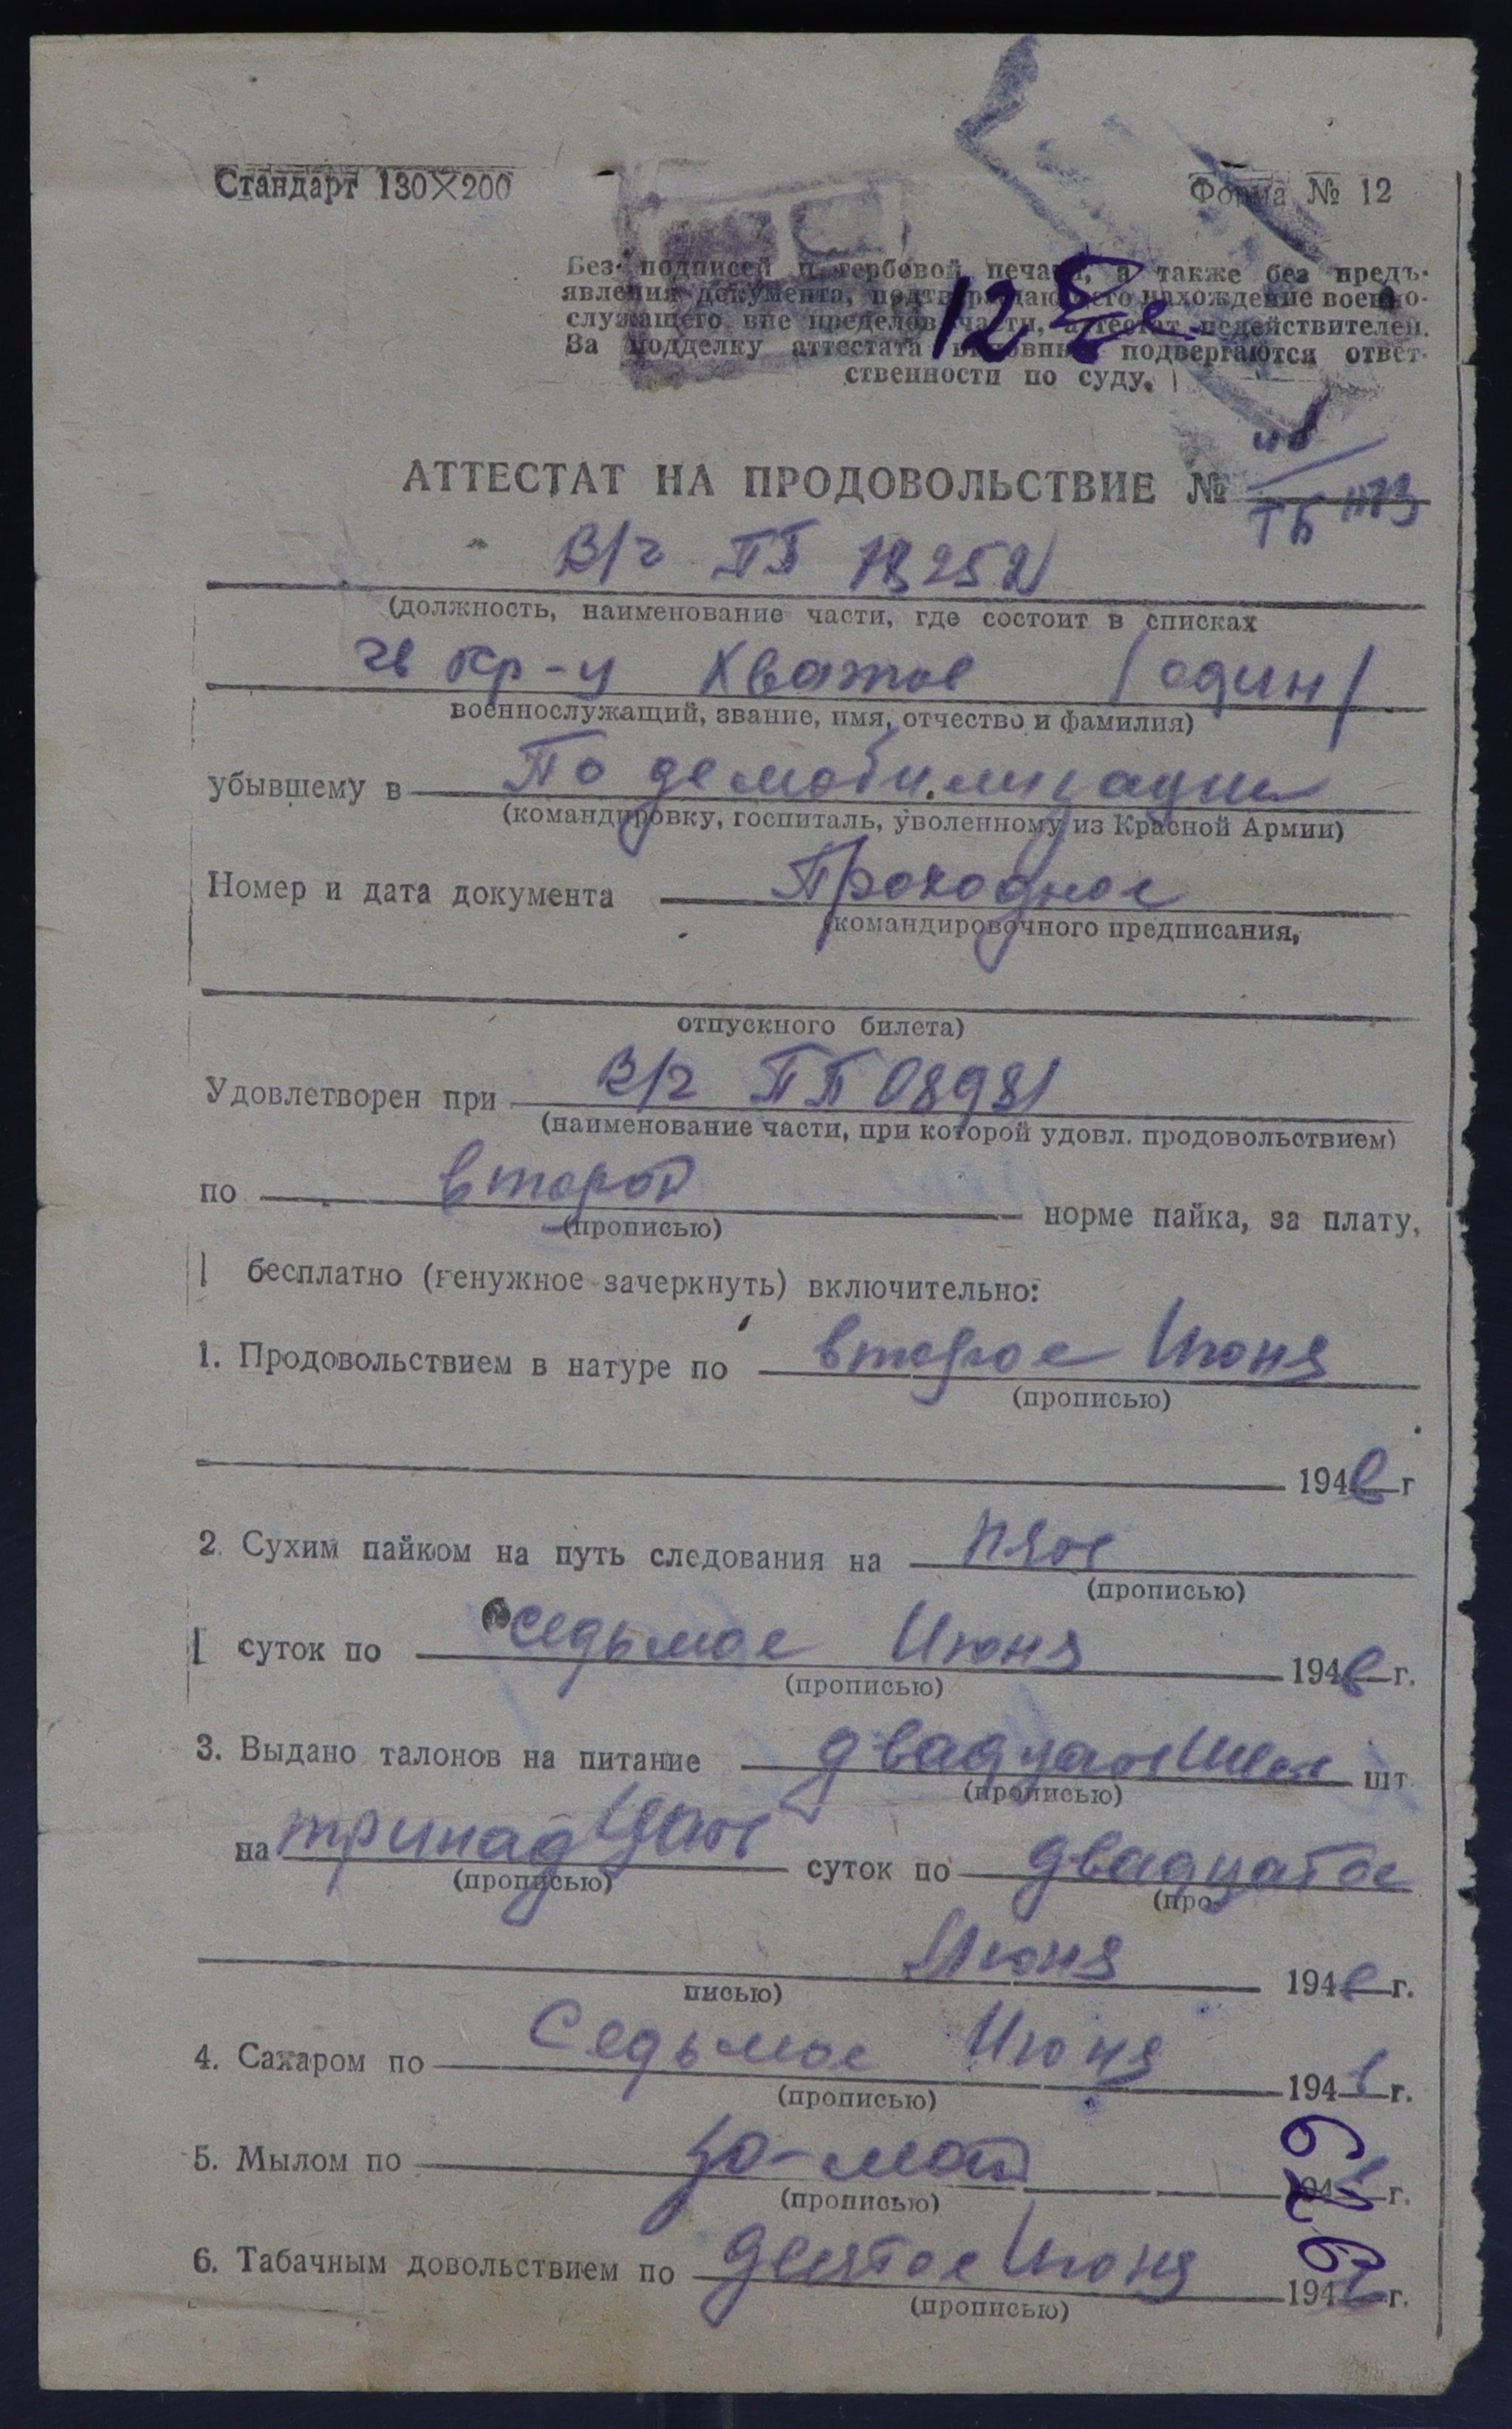 Стандарт 130×200
Форма № 12
Без подписей и гербовой печати, а также без предъ-
явления документа, подтверждающего нахождение военно-
служащего вне пределов части, аттестат недействителен.
За подделку аттестата виновные подвергаются ответ-
ственности по суду.
12
АТТЕСТАТ НА ПРОДОВОЛЬСТВИЕ №
В/ч ПП
(должность, наименование части, где состоит в списках
гв кр-ц /один/
военнослужащий, звание, имя, отчество и фамилия)
убывшему в По демобилизации
(командировку, госпиталь, уволенному из Красной Армии)
Номер и дата документа Проходное
(командировочного предписания,
отпускного билета)
Удовлетворен при В/ч ПП 08981
(наименование части, при которой удовл. продовольствием)
по второй норме пайка, за плату,
(прописью)
бесплатно (ненужное зачеркнуть) включительно:
1. Продовольствием в натуре по второе Июня
(прописью)
1946 г
2. Сухим пайком на путь следования на пять
(прописью)
суток по седьмое Июня 1946 г.
(прописью)
3. Выдано талонов на питание двадцать шт
(прописью)
на тринадцать суток по двадцатое
(прописью) (про-
Июня 1946 г.
писью)
4. Сахаром по Седьмое Июня 1946 г.
(прописью)
5. Мылом по 194 г.
(прописью)
6. Табачным довольствием по Июня 194 г.
(прописью)